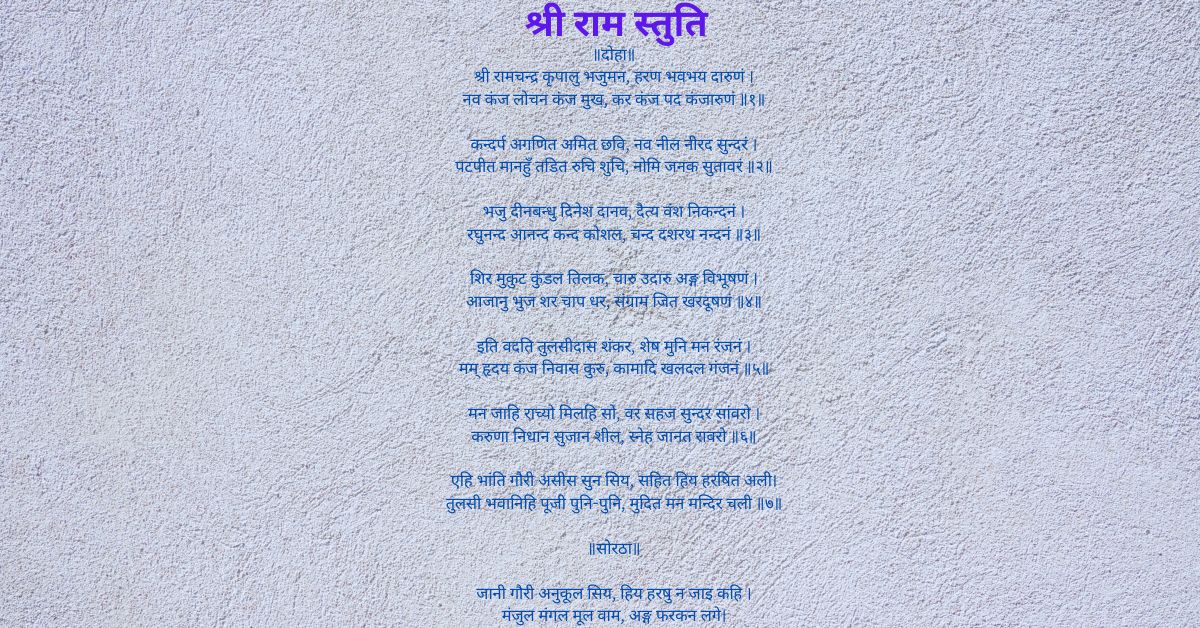 श्री राम स्तुति
॥दोहा॥
श्री रामचन्द्र कृपालु भजुमन, हरण भवभय दारुणं ।
नव कंज लोचन कंज मुख, कर कंज पद कंजारुणं ॥१॥
कन्दर्प अगणित अमित छवि, नव नील नीरद सुन्दरं ।
पटपीत मानहुँ तडित रुचि शुचि, नोमि जनक सुतावरं ॥२॥
भजु दीनबन्धु दिनेश दानव, दैत्य वंश निकन्दनं ।
रघुनन्द आनन्द कन्द कोशल, चन्द दशरथ नन्दनं ॥३॥
शिर मुकुट कुंडल तिलक, चारु उदारु अङ्ग विभूषणं ।
आजानु भुज शर चाप धर, संग्राम जित खरदूषणं ॥४॥
इति वदति तुलसीदास शंकर, शेष मुनि मन रंजनं ।
मम् हृदय कंज निवास कुरु, कामादि खलदल गंजनं ॥५॥
मन जाहि राच्यो मिलहि सो, वर सहज सुन्दर सांवरो ।
करुणा निधान सुजान शील, स्नेह जानत रावरो ॥६॥
एहि भांति गौरी असीस सुन सिय, सहित हिय हरषित अली।
तुलसी भवानिहि पूजी पुनि-पुनि, मुदित मन मन्दिर चली ॥७॥
॥सोरठा॥
जानी गौरी अनुकूल सिय, हिय हरषु न जाइ कहि ।
मंजुल मंगल मूल वाम, अङ्ग फरकन लगे।